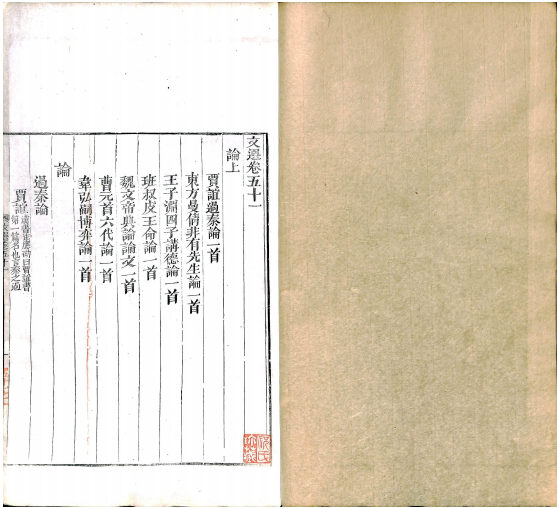 文選卷五十一
論上
賈誼過秦論一首
東方曼倩非有先生論一首
王子淵四子講德論一首
班叔皮王命論一首
魏文帝典論論文一首
曹元首六代論一首
韋弘嗣博弈論一首
論
過秦論
賈誼
第一篇名也言秦之過